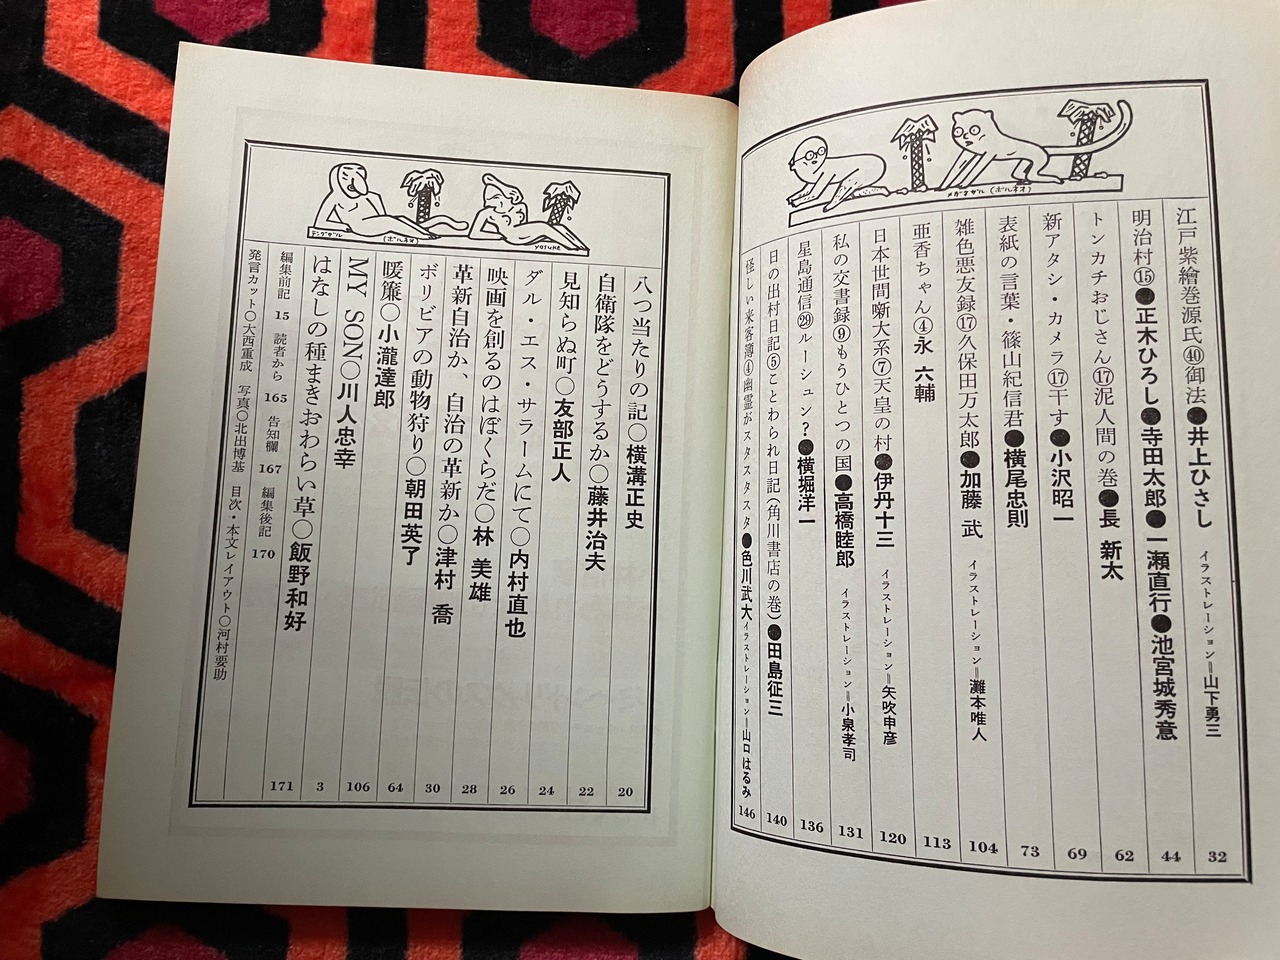 メガネザル(ボルネオ)
江戸紫繪巻源氏㊵御法●井上ひさし イラストレーション=山下勇三 32
明治村⑮●正木ひろし●寺田太郎●一瀬直行●池宮城秀意 44
トンカチおじさん⑰泥人間の巻●長 新太 62
新アタシ・カメラ⑰干す●小沢昭一 69
表紙の言葉・篠山紀信君●横尾忠則 73
雑色悪友録⑰久保田万太郎●加藤 武 イラストレーション=灘本唯人 104
亜香ちゃん④永 六輔 113
日本世間噺大系⑦天皇の村●伊丹十三 イラストレーション=矢吹申彦 120
私の交書録⑨もうひとつの国●高橋睦郎 イラストレーション=小泉孝司 131
星島通信㉙ルーシュン?●横堀洋一 136
日の出村日記⑤ことわられ日記(角川書店の巻)●田島征三 140
怪しい来客簿④幽霊がスタスタスタ●色川武大 イラストレーション=山口はるみ 146
テングザル
(ボルネオ)
yosuke
八つ当たりの記○横溝正史 20
自衛隊をどうするか○藤井治夫 22
見知らぬ町○友部正人 24
ダル・エス・サラームにて○内村直也 26
映画を創るのはぼくらだ○林 美雄 28
革新自治か、自治の革新か○津村 喬 30
ボリビアの動物狩り○朝田英了 64
暖簾○小瀧達郎 106
MY SON○川人忠幸 3
はなしの種まきおわらい草○飯野和好 171
編集前記 15 読者から 165 告知欄 167 編集後記 170
発言カット○大西重成 写真○北出博基 目次・本文レイアウト○河村要助